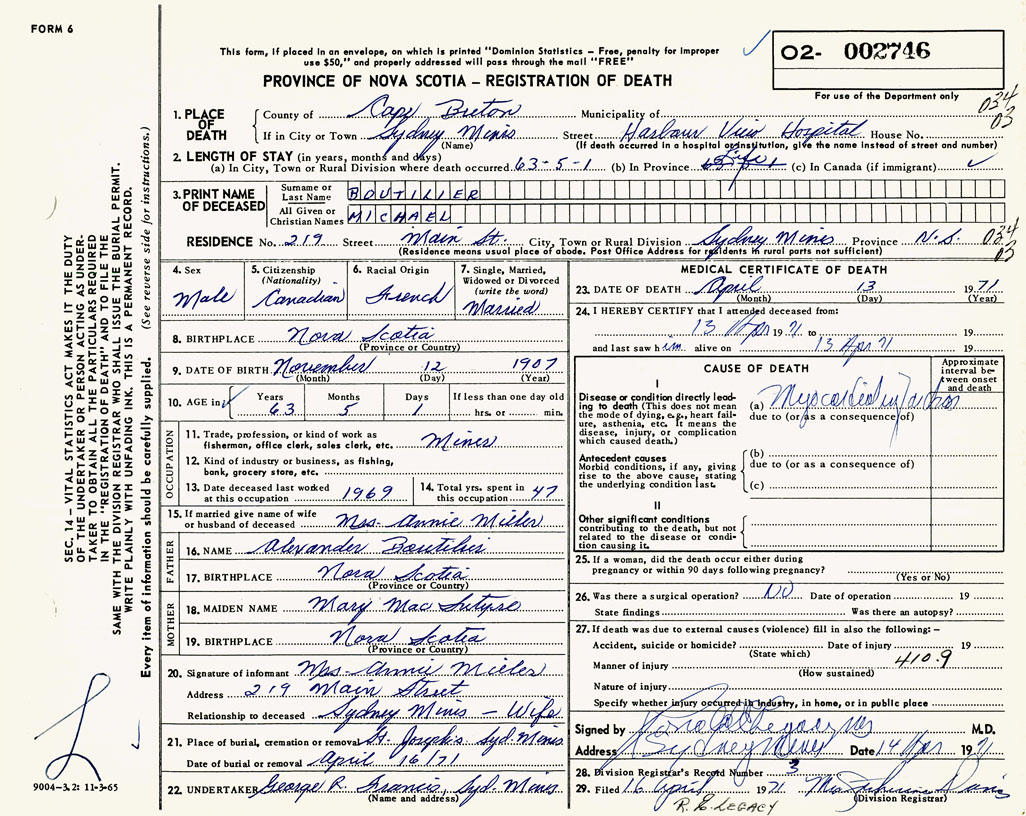 FORM 6
This form, if placed in an envelope, on which is printed "Dominion Statistics – Free, penalty for improper
use $50," and properly addressed will pass through the mail "FREE"
PROVINCE OF NOVA SCOTIA – REGISTRATION OF DEATH
O2- 002746
For use of the Department only
034
03
1. PLACE OF DEATH
County of Cape Breton Municipality of
If in City or Town Sydney Mines Street Harbour View Hospital House No.
(Name) (If death occurred in a hospital or institution, give the name instead of street and number)
2. LENGTH OF STAY (in years, months and days)
(a) In City, Town or Rural Division where death occurred 63-5-1 (b) In Province Life (c) In Canada (if immigrant)
3. PRINT NAME OF DECEASED
Surname or Last Name BOUTILIER
All Given or Christian Names MICHAEL
RESIDENCE No. 219 Street Main St. City, Town or Rural Division Sydney Mines Province N.S.
034
03
(Residence means usual place of abode. Post Office Address for residents in rural parts not sufficient)
4. Sex
Male
5. Citizenship (Nationality)
Canadian
6. Racial Origin
French
7. Single, Married, Widowed or Divorced (write the word)
Married
8. BIRTHPLACE Nova Scotia
(Province or Country)
9. DATE OF BIRTH November 12 1907
(Month) (Day) (Year)
10. AGE in
Years 63 Months 5 Days 1 If less than one day old hrs. or min.
OCCUPATION
11. Trade, profession, or kind of work as fisherman, office clerk, sales clerk, etc. Miner
12. Kind of industry or business, as fishing, bank, grocery store, etc.
13. Date deceased last worked at this occupation 1969
14. Total yrs. spent in this occupation 47
15. If married give name of wife or husband of deceased Mrs. Annie Miller
FATHER
16. NAME Alexander Boutilier
17. BIRTHPLACE Nova Scotia
(Province or Country)
MOTHER
18. MAIDEN NAME Mary Mac
19. BIRTHPLACE Nova Scotia
(Province or Country)
20. Signature of informant Mrs. Annie Miller
Address 219 Main Street
Relationship to deceased Sydney Mines – Wife
21. Place of burial, cremation or removal St. Joseph's Syd. Mines
Date of burial or removal April 16/71
22. UNDERTAKER George R. Francis, Syd. Mines
(Name and address)
MEDICAL CERTIFICATE OF DEATH
23. DATE OF DEATH April 13 1971
(Month) (Day) (Year)
24. I HEREBY CERTIFY that I attended deceased from:
13 Apr 1971 to 19
and last saw him alive on 13 Apr 71 19
CAUSE OF DEATH
Approximate interval between onset and death
I
Disease or condition directly leading to death (This does not mean the mode of dying, e.g., heart failure, asthenia, etc. It means the disease, injury, or complication which caused death.)
(a) Myocardial
due to (or as a consequence of)
Antecedent causes
Morbid conditions, if any, giving rise to the above cause, stating the underlying condition last.
(b)
due to (or as a consequence of)
(c)
II
Other significant conditions
contributing to the death, but not related to the disease or condition causing it.
25. If a woman, did the death occur either during
pregnancy or within 90 days following pregnancy?
(Yes or No)
26. Was there a surgical operation? NO Date of operation 19
State findings Was there an autopsy?
27. If death was due to external causes (violence) fill in also the following:–
Accident, suicide or homicide? Date of injury 19
(State which)
410.9
Manner of injury
(How sustained)
Nature of injury
Specify whether injury occurred in industry, in home, or in public place
Signed by M.D.
Address Sydney Mines Date 14 Apr 1971
28. Division Registrar's Record Number 3
29. Filed 16 April 1971 Mrs
(Division Registrar)
R. E. LEGACY
SEC. 14 – VITAL STATISTICS ACT MAKES IT THE DUTY
OF THE UNDERTAKER OR PERSON ACTING AS UNDER-
TAKER TO OBTAIN ALL THE PARTICULARS REQUIRED
IN THE "REGISTRATION OF DEATH" AND TO FILE THE
SAME WITH THE DIVISION REGISTRAR WHO SHALL ISSUE THE BURIAL PERMIT.
WRITE PLAINLY WITH UNFADING INK. THIS IS A PERMANENT RECORD.
Every item of information should be carefully supplied. (See reverse side for instructions.)
9004-3.2: 11-3-65